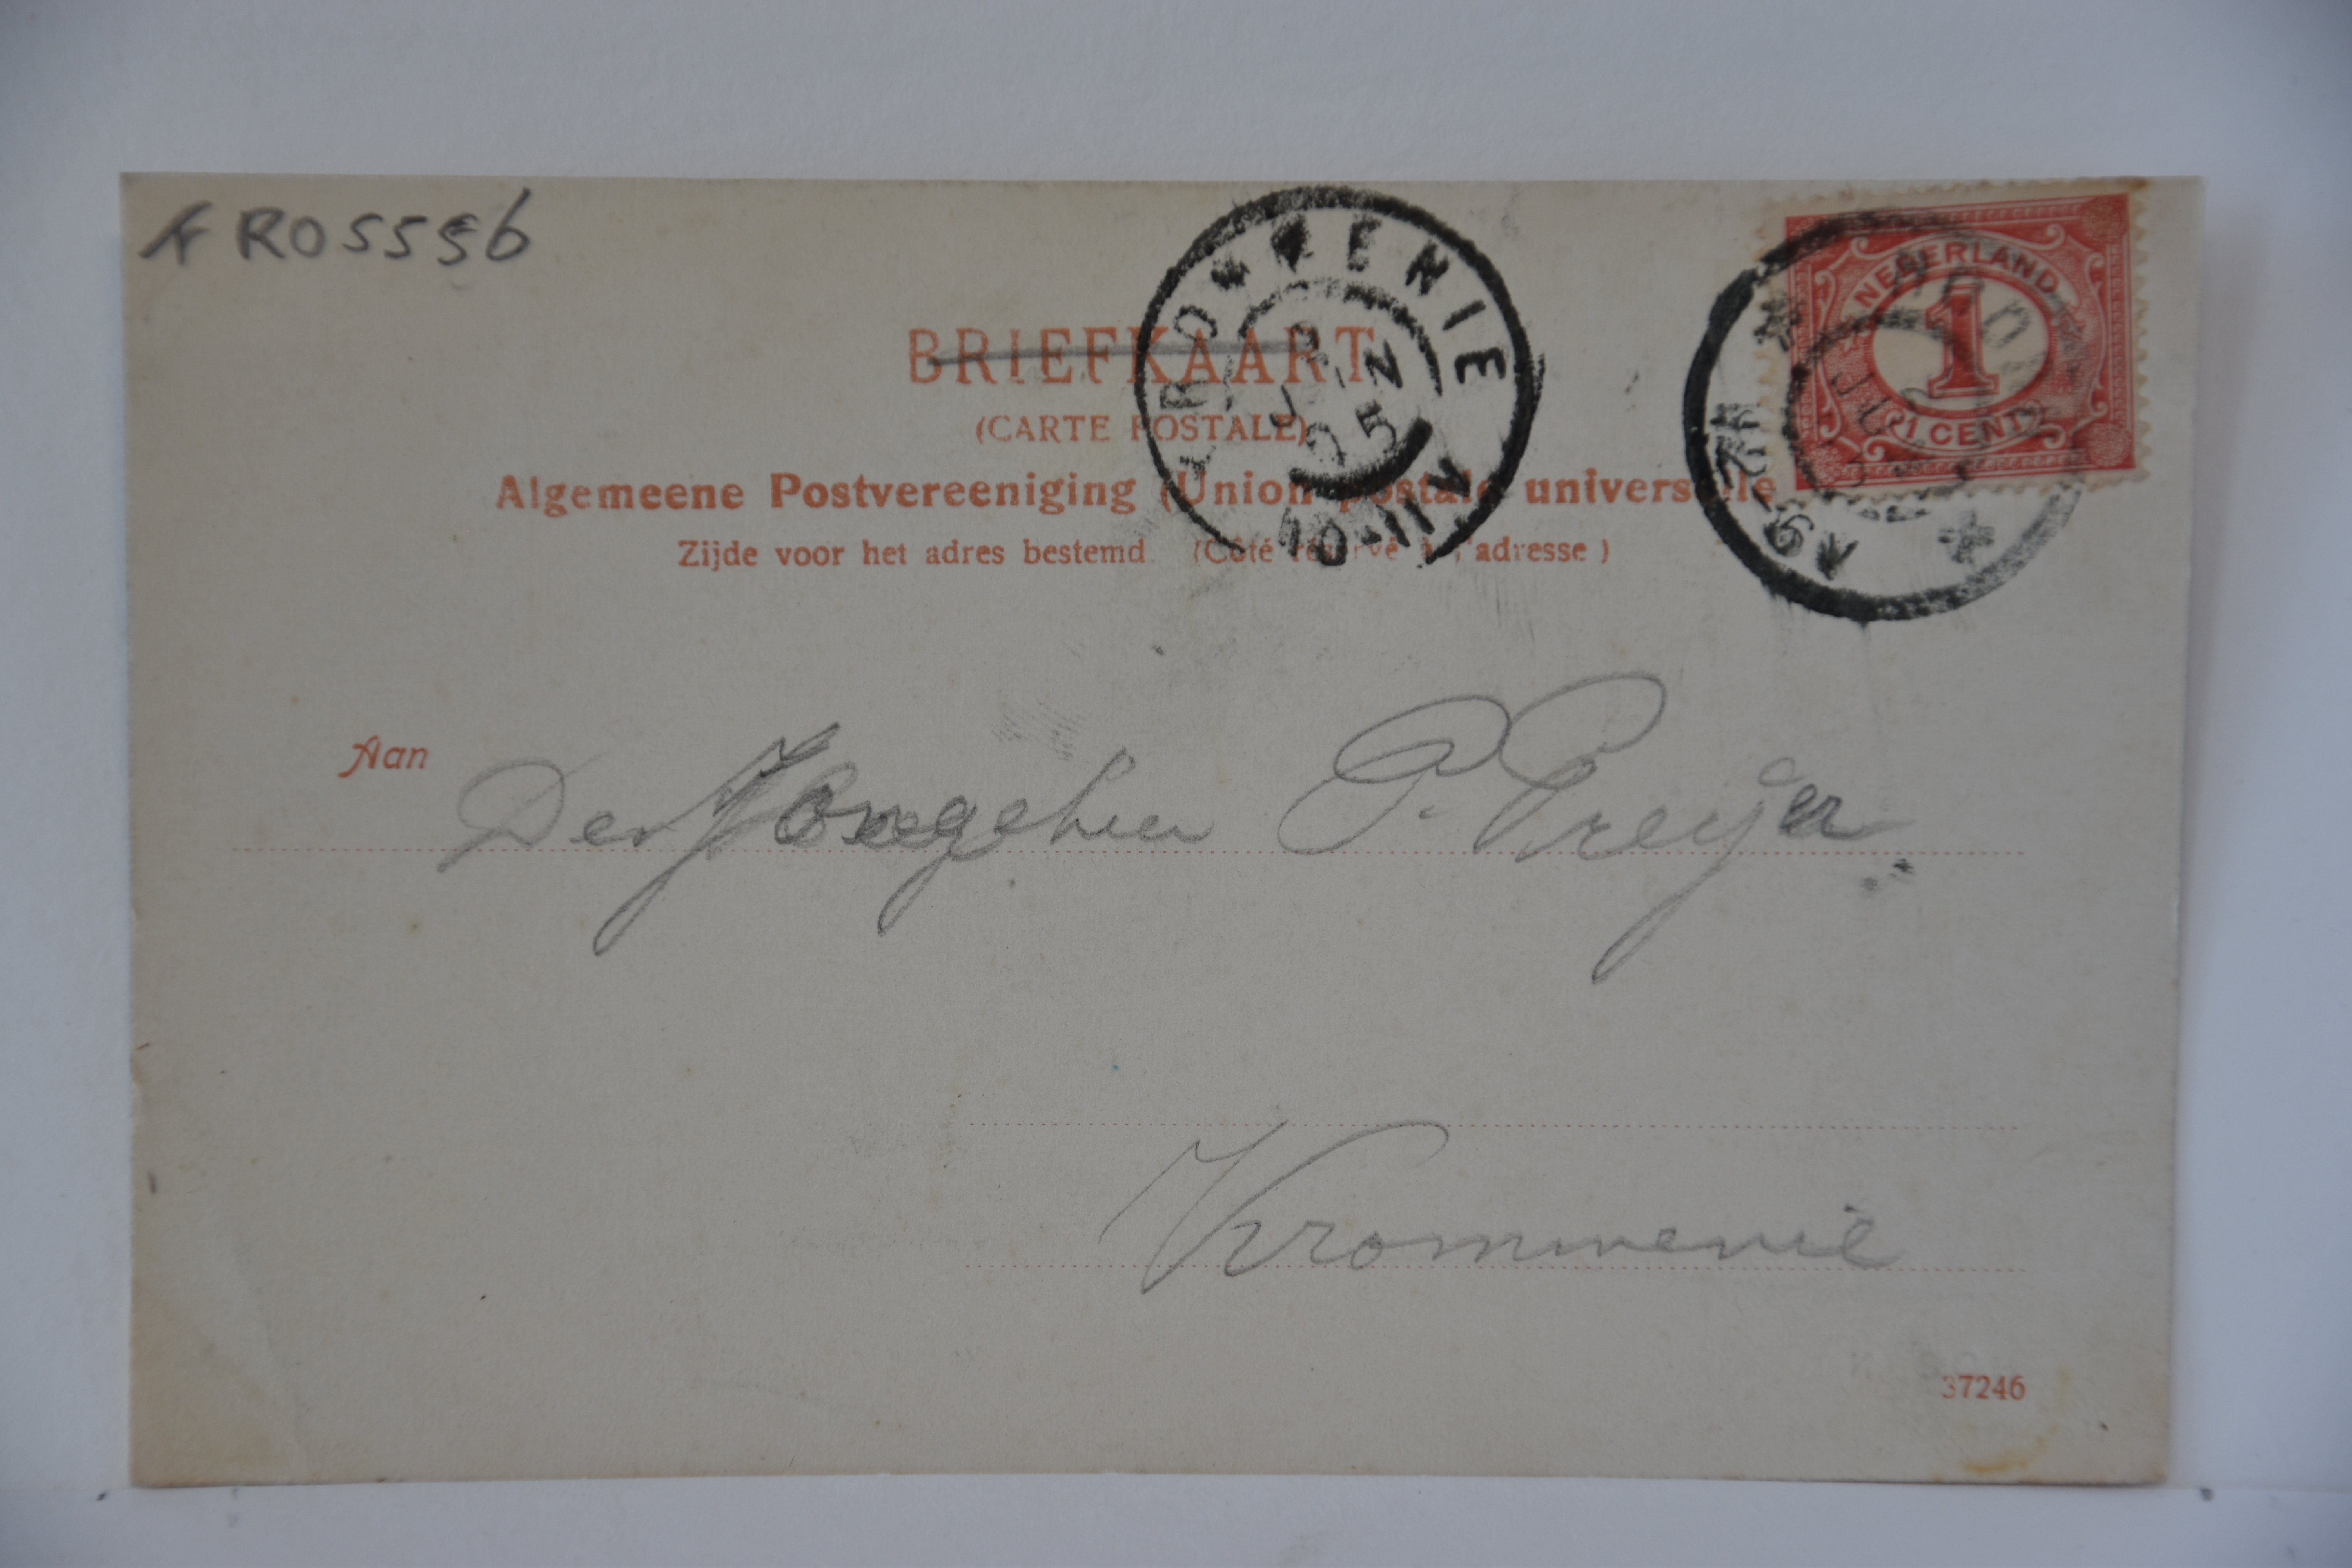 FR05556
KROMMENIE
JUN
05
10-11V
NEDERLAND
1
1 CENT
BRIEFKAART
(CARTE POSTALE)
Algemeene Postvereeniging (Union postale universelle
Zijde voor het adres bestemd. (Côté réservé à l'adresse)
Aan
Den Jongeheer P. Preijer
Krommenie
37246